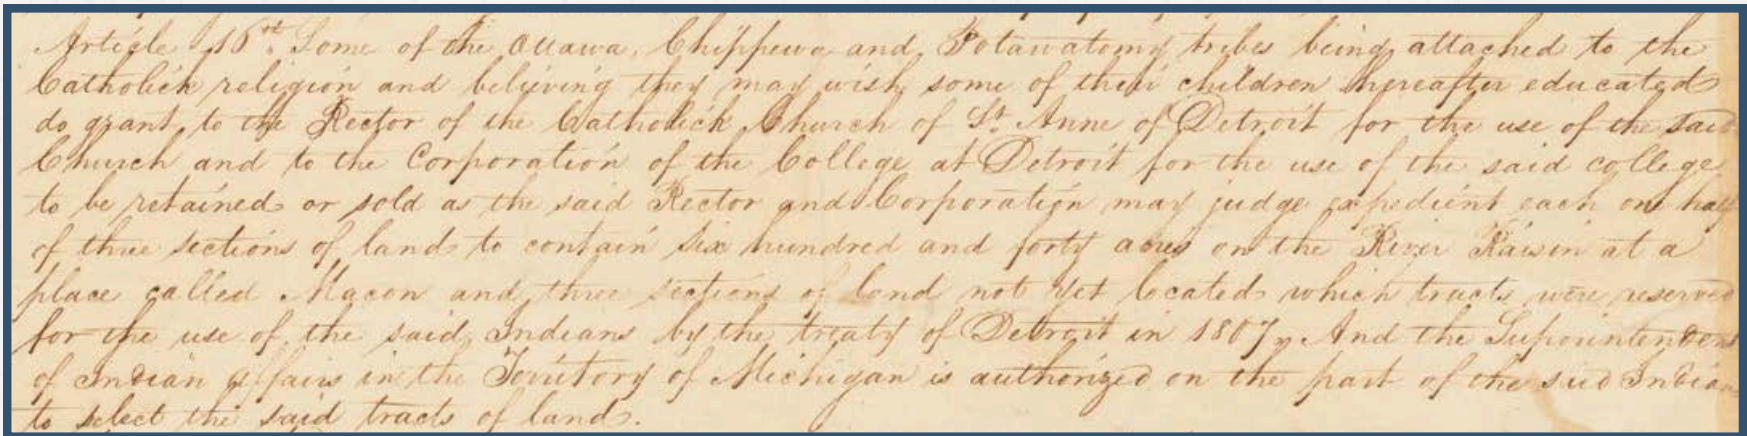 Article 16st. Some of the Ottawa, Chippewa and Potawatomy tribes being attached to the
Catholick religion and believing they may wish some of their children hereafter educated
do grant to the Rector of the Catholick Church of St. Anne of Detroit for the use of the said
Church and to the Corporation of the College at Detroit for the use of the said college
to be retained or sold as the said Rector and Corporation may judge expedient each one half
of three sections of land to contain six hundred and forty acres on the River Raisin at a
place called Macon and three sections of land not yet located which tracts were reserved
for the use of the said Indians by the treaty of Detroit in 1807, And the Superintendent
of Indian Affairs in the Territory of Michigan is authorized on the part of the said Indians
to select the said tracts of land.